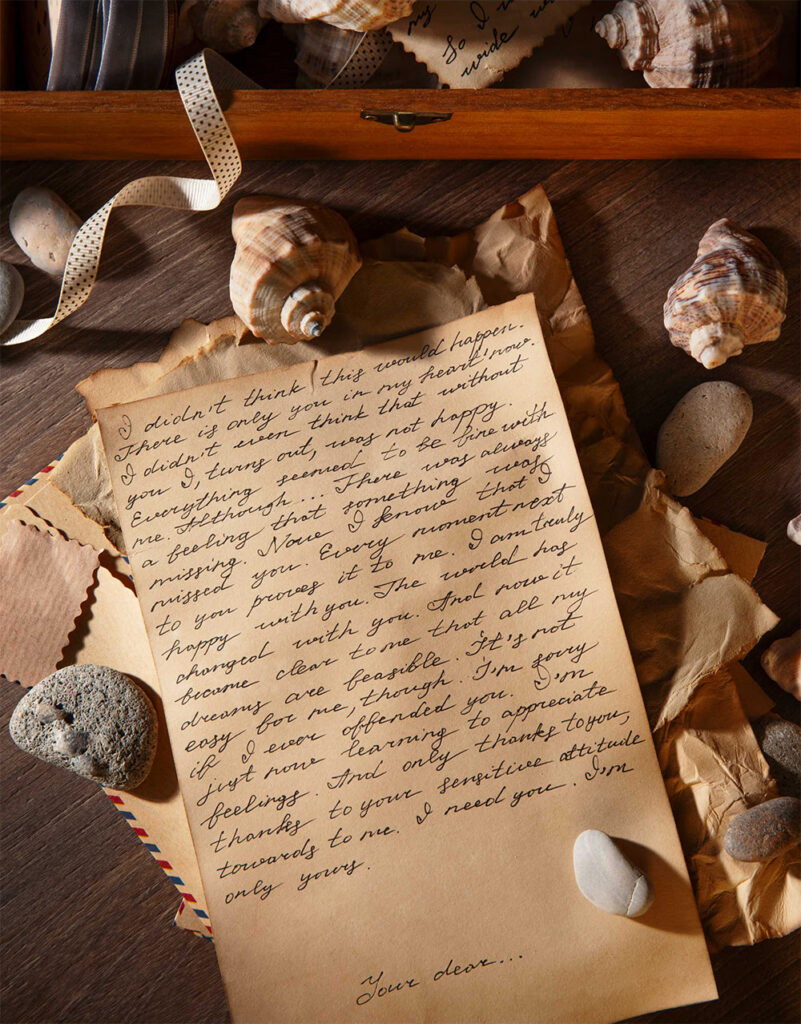 my
So I w
wide w
I didn't think this would happen.
There is only you in my heart now.
I didn't even think that without
you I, turns out, was not happy.
Everything seemed to be fine with
me. Although... There was always
a feeling that something was
missing. Now I know that I
missed you. Every moment next
to you proves it to me. I am truly
happy with you. The world has
changed with you. And now it
became clear to me that all my
dreams are feasible. It's not
easy for me, though. I'm sorry
if I ever offended you. I'm
just now learning to appreciate
feelings. And only thanks to you,
thanks to your sensitive attitude
towards to me. I need you. I'm
only yours.
Your dear...